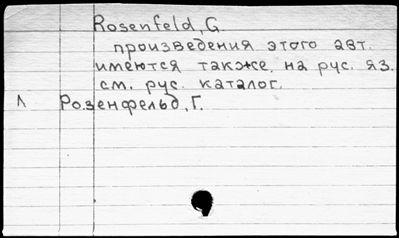 Rosenfeld, G.
произведения этого авт.
имеются также, на рус. яз.
см. рус. каталог.
Розенфельд, Г.